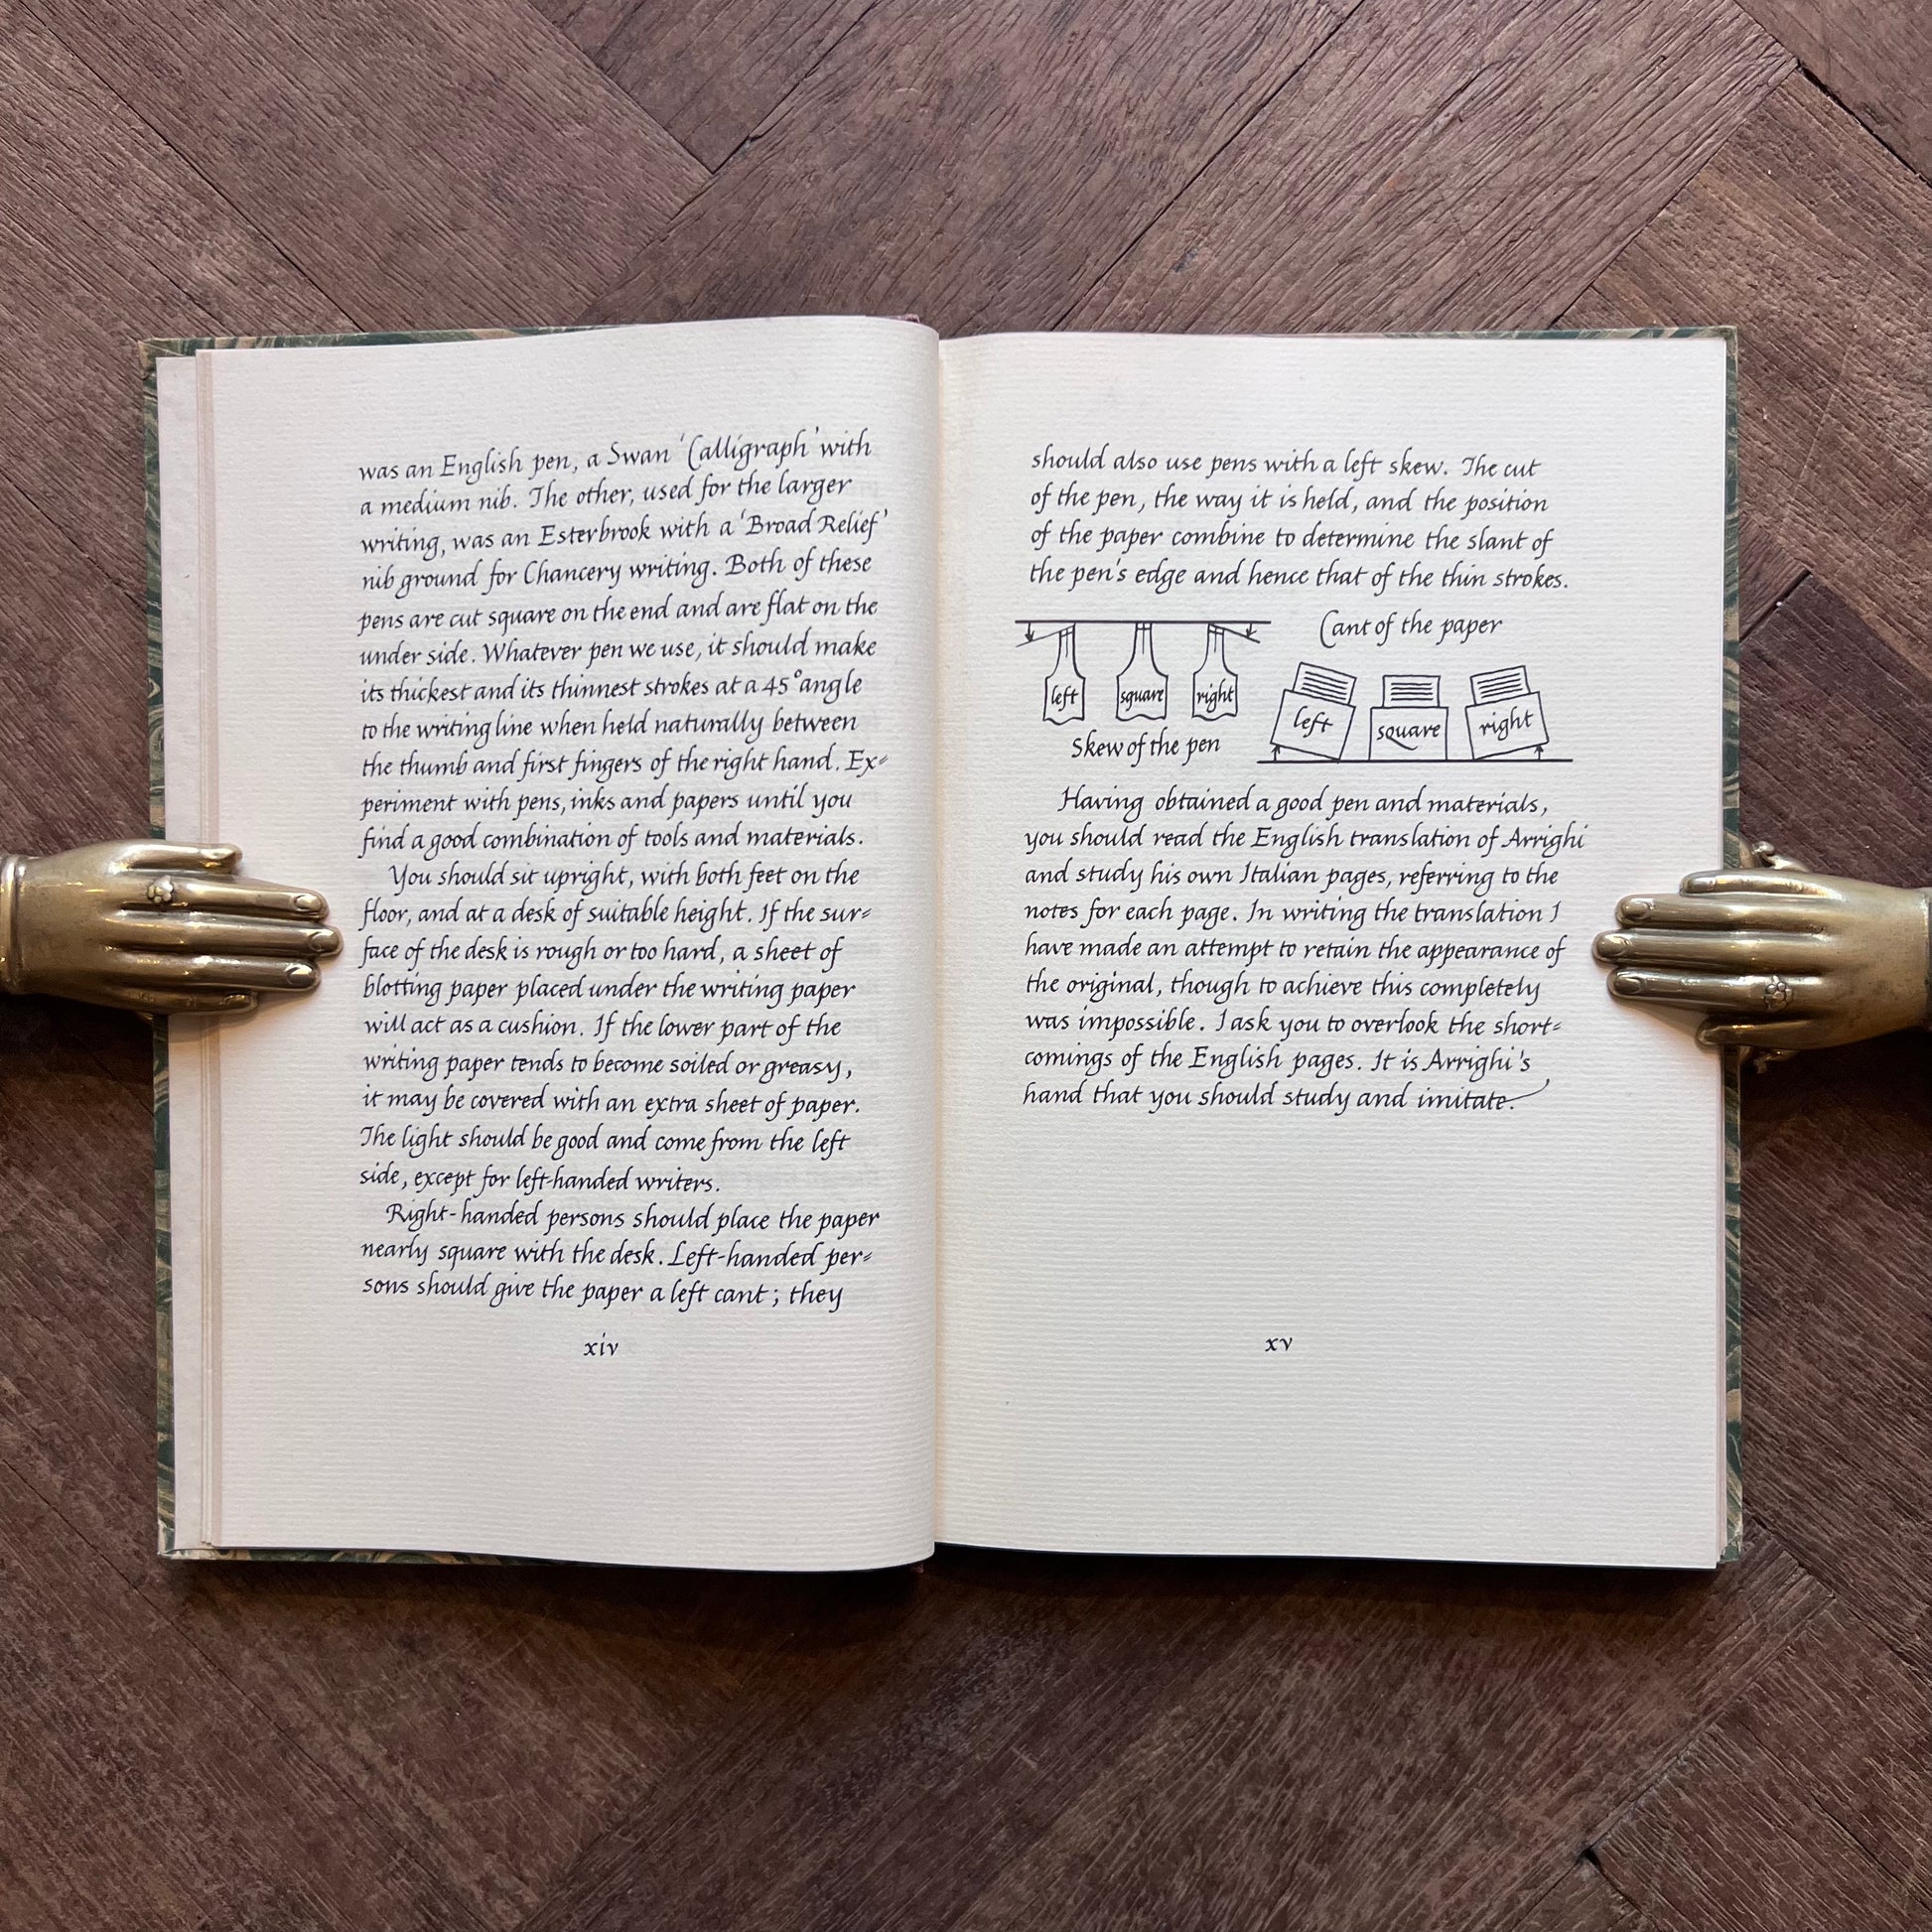 was an English pen, a Swan ‘Calligraph’ with
a medium nib. The other, used for the larger
writing, was an Esterbrook with a ‘Broad Relief’
nib ground for Chancery writing. Both of these
pens are cut square on the end and are flat on the
under side. Whatever pen we use, it should make
its thickest and its thinnest strokes at a 45° angle
to the writing line when held naturally between
the thumb and first fingers of the right hand. Ex=
periment with pens, inks and papers until you
find a good combination of tools and materials.
You should sit upright, with both feet on the
floor, and at a desk of suitable height. If the sur=
face of the desk is rough or too hard, a sheet of
blotting paper placed under the writing paper
will act as a cushion. If the lower part of the
writing paper tends to become soiled or greasy,
it may be covered with an extra sheet of paper.
The light should be good and come from the left
side, except for left-handed writers.
Right-handed persons should place the paper
nearly square with the desk. Left-handed per=
sons should give the paper a left cant; they
xiv
should also use pens with a left skew. The cut
of the pen, the way it is held, and the position
of the paper combine to determine the slant of
the pen's edge and hence that of the thin strokes.
left square right
Skew of the pen
Cant of the paper
left square right
Having obtained a good pen and materials,
you should read the English translation of Arrighi
and study his own Italian pages, referring to the
notes for each page. In writing the translation I
have made an attempt to retain the appearance of
the original, though to achieve this completely
was impossible. I ask you to overlook the short=
comings of the English pages. It is Arrighi's
hand that you should study and imitate.
xv